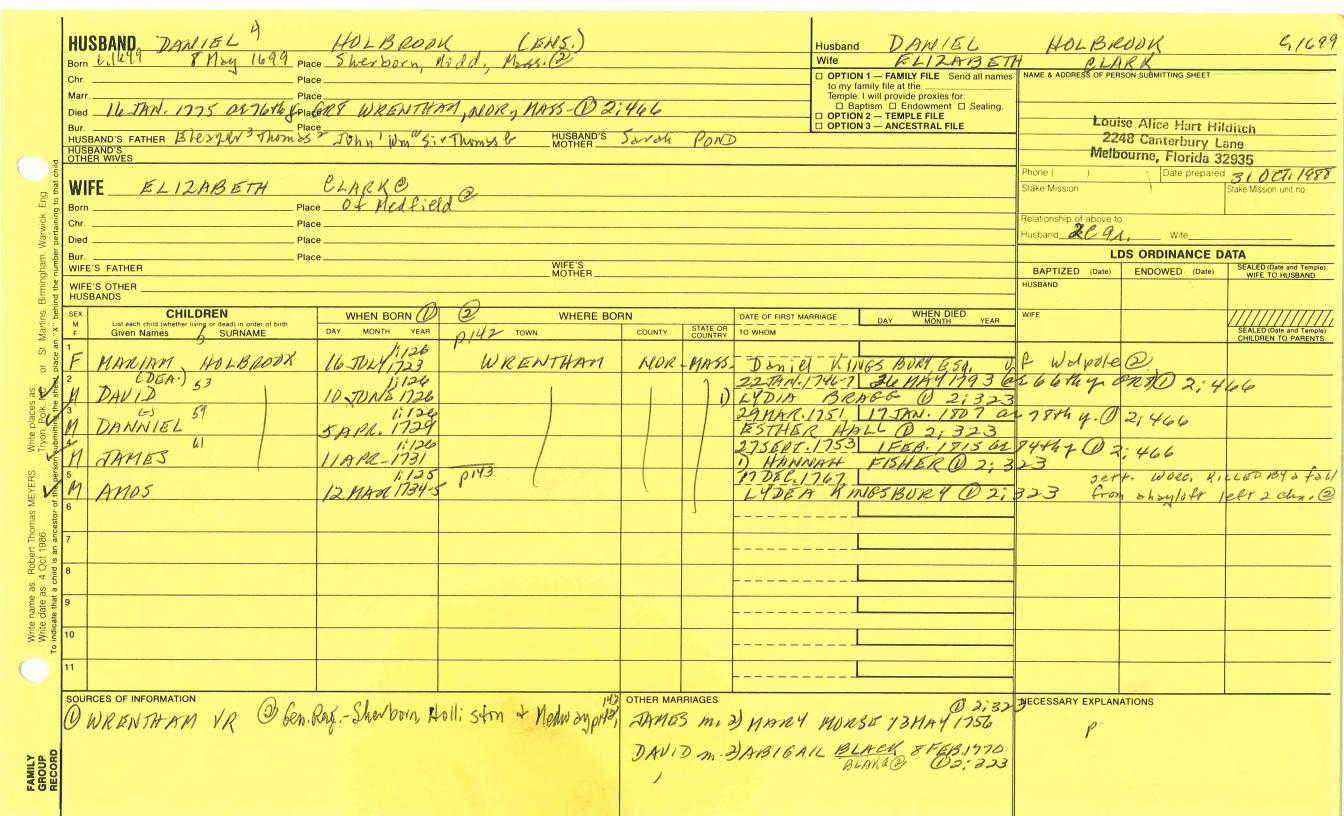 HUSBAND DANIEL 4 HOLBROOK (ENS.)
Born c.1699 8 May 1699 Place Sherborn, Midd., Mass. ②
Chr. Place
Marr. Place
Died 16 JAN. 1775 ae 76th y. Place GRT WRENTHAM, NOR., MASS - ① 2;466
Bur. Place
HUSBAND'S FATHER Eleazer 3 Thomas 2 John 1 Wm Sir Thomas HUSBAND'S MOTHER Sarah POND
HUSBAND'S OTHER WIVES
WIFE ELIZABETH CLARK ②
Born Place of Medfield ②
Chr. Place
Died Place
Bur. Place
WIFE'S FATHER WIFE'S MOTHER
WIFE'S OTHER HUSBANDS
Husband DANIEL HOLBROOK C,1699
Wife ELIZABETH CLARK
☐ OPTION 1 — FAMILY FILE Send all names
to my family file at the
Temple. I will provide proxies for:
☐ Baptism ☐ Endowment ☐ Sealing.
☐ OPTION 2 — TEMPLE FILE
☐ OPTION 3 — ANCESTRAL FILE
NAME & ADDRESS OF PERSON SUBMITTING SHEET
Louise Alice Hart Hilditch
2248 Canterbury Lane
Melbourne, Florida 32935
Phone ( ) Date prepared 31 OCT. 1988
Stake-Mission Stake/Mission unit no.
Relationship of above to
Husband Wife
LDS ORDINANCE DATA
BAPTIZED (Date) ENDOWED (Date) SEALED (Date and Temple) WIFE TO HUSBAND
HUSBAND
WIFE
SEALED (Date and Temple)
CHILDREN TO PARENTS
SEX M F
CHILDREN
List each child (whether living or dead) in order of birth
Given Names SURNAME
WHEN BORN ① DAY MONTH YEAR
② p142 WHERE BORN
TOWN COUNTY STATE OR COUNTRY
DATE OF FIRST MARRIAGE
TO WHOM
WHEN DIED
DAY MONTH YEAR
1 F MARIAM HOLBROOK 16 JULY 1723 1;126 WRENTHAM NOR- MASS. Daniel KINGSBURY, Esq. of Walpole ②
2 M DAVID (DEA.) 53 10 JUNE 1726 1;126 22 JAN. 1746-7 26 MAY 1793 ae 66th y. GRT ① 2;466
1) LYDIA BRAGG ① 2;323
3 M DANNIEL 59 5 APR. 1729 1;126 29 MAR. 1751 17 JAN. 1807 ae 78th y. ① 2;466
ESTHER HALL ① 2;323
4 M JAMES 61 11 APR- 1731 1;126 27 SEPT. 1753 1 FEB. 1815 ae 84th y ① 2;466
1) HANNAH FISHER ① 2;323
5 M AMOS 12 MAR 1734-5 1;125 p143 17 DEC. 1767 sett. WORC. KILLED BY a fall
LYDEA KINGSBURY ① 2;323 from a hayloft left 2 chn. ②
6
7
8
9
10
11
SOURCES OF INFORMATION
① WRENTHAM VR ② Gen. Reg.- Sherborn, Holliston & Medway p142,
143
OTHER MARRIAGES ① 2;323
JAMES m. 2) MARY MORSE 23 MAY 1756
DAVID m. 2) ABIGAIL BLACK 8 FEB. 1770
BLAKE ② ① 2;323
NECESSARY EXPLANATIONS
P
FAMILY GROUP RECORD
Write name as: Robert Thomas MEYERS Write places as: Tryon, Polk, or St. Martins, Birmingham, Warwick, Eng
Write date as: 4 Oct 1986
To indicate that a child is an ancestor of the person submitting the sheet, place an "X" behind the number pertaining to that child